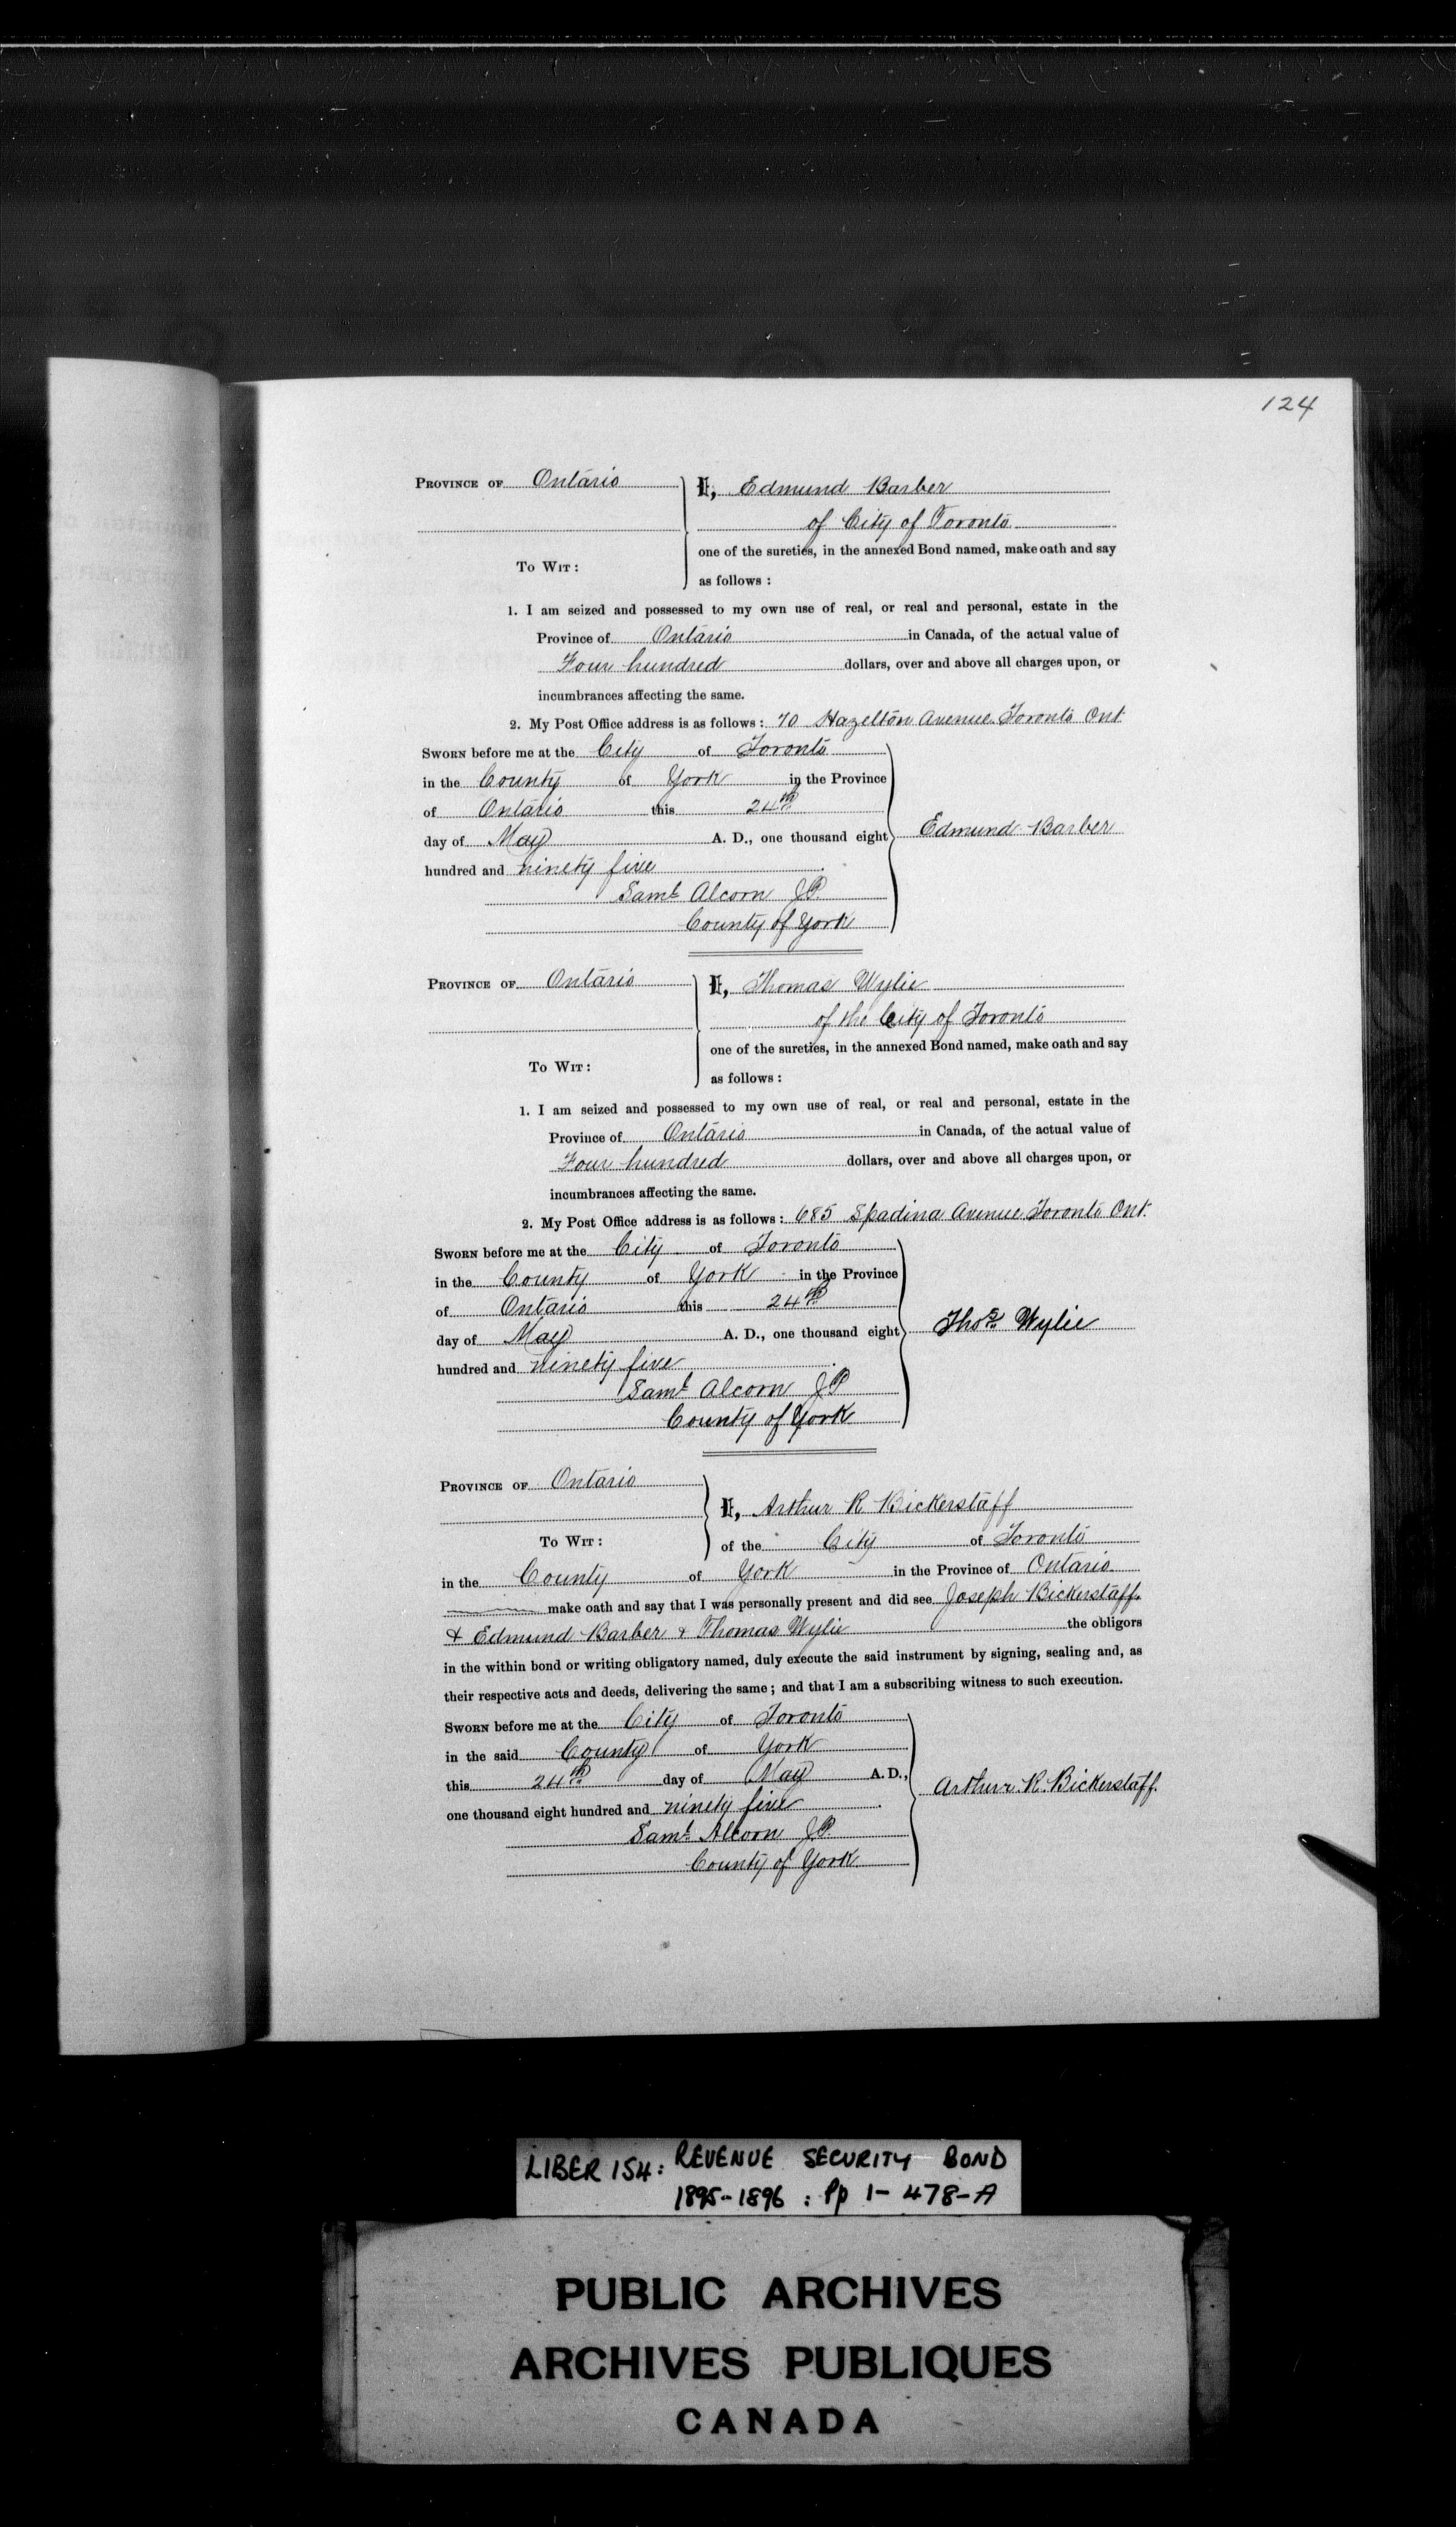 124
PROVINCE OF Ontario
I, Edmund Barber
of City of Toronto
TO WIT:
one of the sureties, in the annexed Bond named, make oath and say
as follows:
1. I am seized and possessed to my own use of real, or real and personal, estate in the
Province of Ontario in Canada, of the actual value of
Four hundred dollars, over and above all charges upon, or
incumbrances affecting the same.
2. My Post Office address is as follows: 70 Hazelton Avenue Toronto Ont.
SWORN before me at the City of Toronto
in the County of York in the Province
of Ontario this 24th
day of May A. D., one thousand eight
hundred and ninety five
Edmund Barber
Saml Alcorn JP.
County of York
PROVINCE OF Ontario
I, Thomas Wylie
of the City of Toronto
TO WIT:
one of the sureties, in the annexed Bond named, make oath and say
as follows:
1. I am seized and possessed to my own use of real, or real and personal, estate in the
Province of Ontario in Canada, of the actual value of
Four hundred dollars, over and above all charges upon, or
incumbrances affecting the same.
2. My Post Office address is as follows: 685 Spadina Avenue Toronto Ont.
SWORN before me at the City of Toronto
in the County of York in the Province
of Ontario this 24th
day of May A. D., one thousand eight
hundred and ninety five
Thos Wylie
Saml Alcorn JP
County of York
PROVINCE OF Ontario
I, Arthur R Bickerstaff
TO WIT:
of the City of Toronto
in the County of York in the Province of Ontario
make oath and say that I was personally present and did see Joseph Bickerstaff
& Edmund Barber & Thomas Wylie the obligors
in the within bond or writing obligatory named, duly execute the said instrument by signing, sealing and, as
their respective acts and deeds, delivering the same; and that I am a subscribing witness to such execution.
SWORN before me at the City of Toronto
in the said County of York
this 24th day of May A.D.,
one thousand eight hundred and ninety five
Arthur. R. Bickerstaff.
Saml Alcorn JP.
County of York
LIBER 154: REVENUE SECURITY BOND
1895-1896 : Pp 1-478-A
PUBLIC ARCHIVES
ARCHIVES PUBLIQUES
CANADA